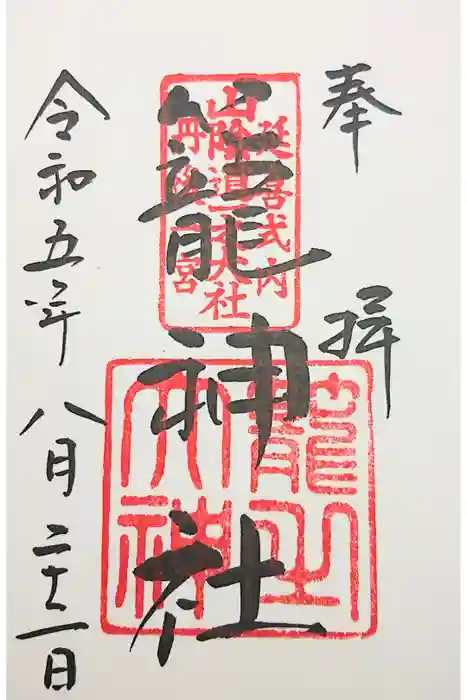 奉拝
延喜式内
山陰道一之大社
丹後一宮
籠神社
籠之
大神
令和五年八月二十二日